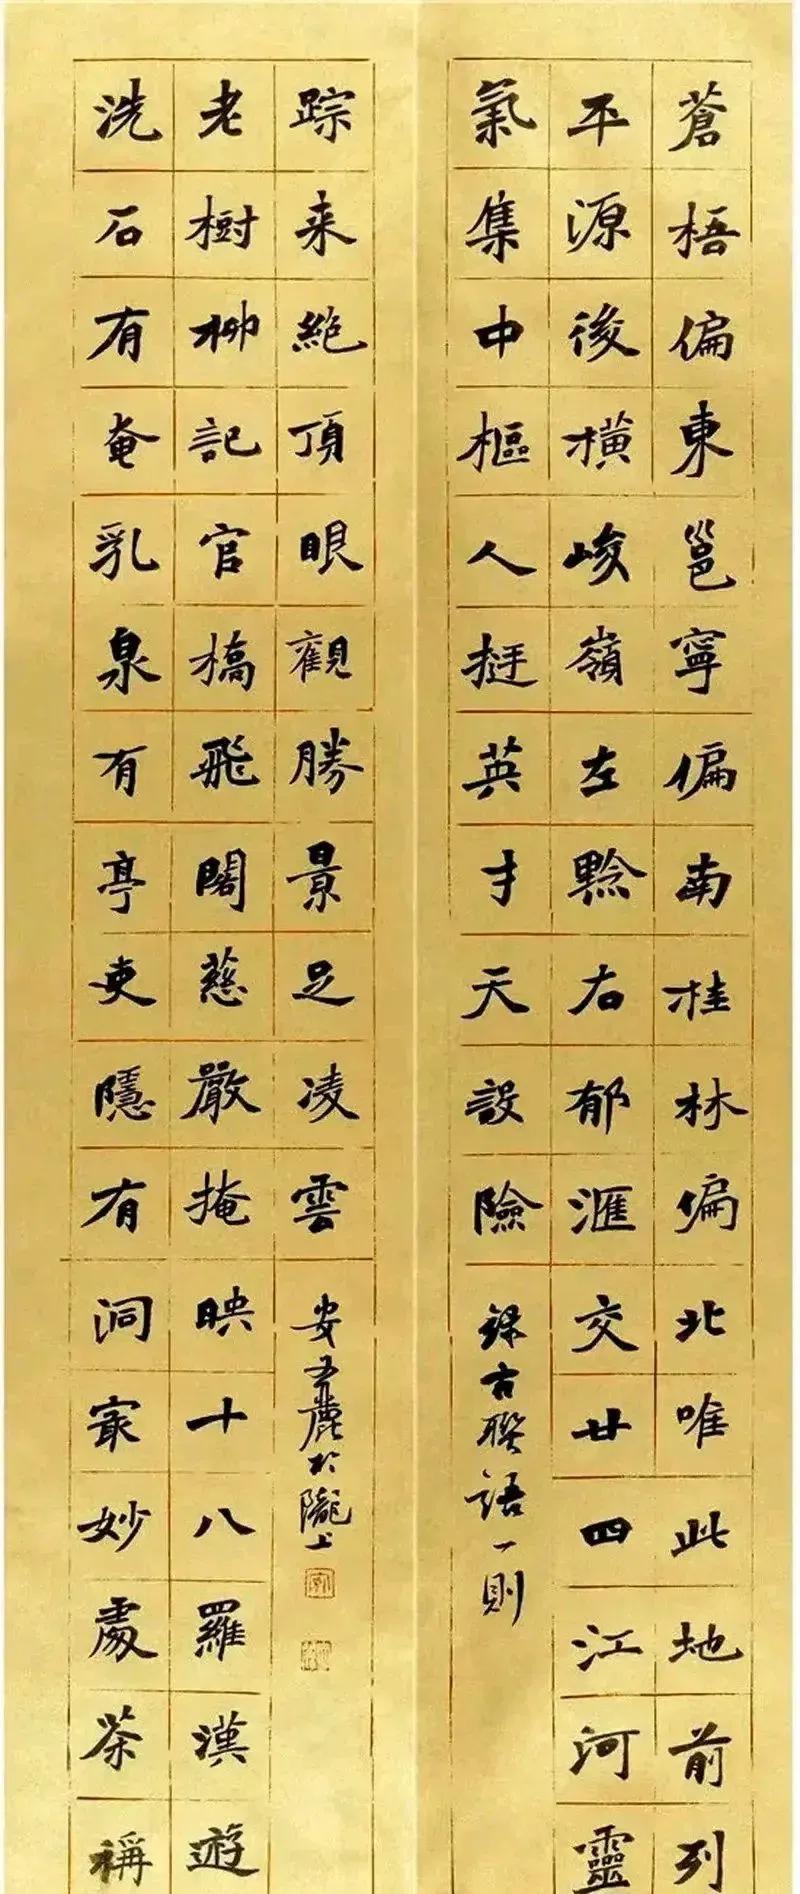 蒼梧偏東邕寧偏南桂林偏北唯此地前列
平源後橫峻嶺左黔右郁滙交廿四江河靈
氣集中樞人挺英才天設險
錄古聯語一則
洗石有奄乳泉有亭吏隱有洞寂妙處茶稱
老樹柳記官橋飛閣慈嚴掩映十八羅漢遊
踪来絕頂眼觀勝景足凌雲
安麓於隴上